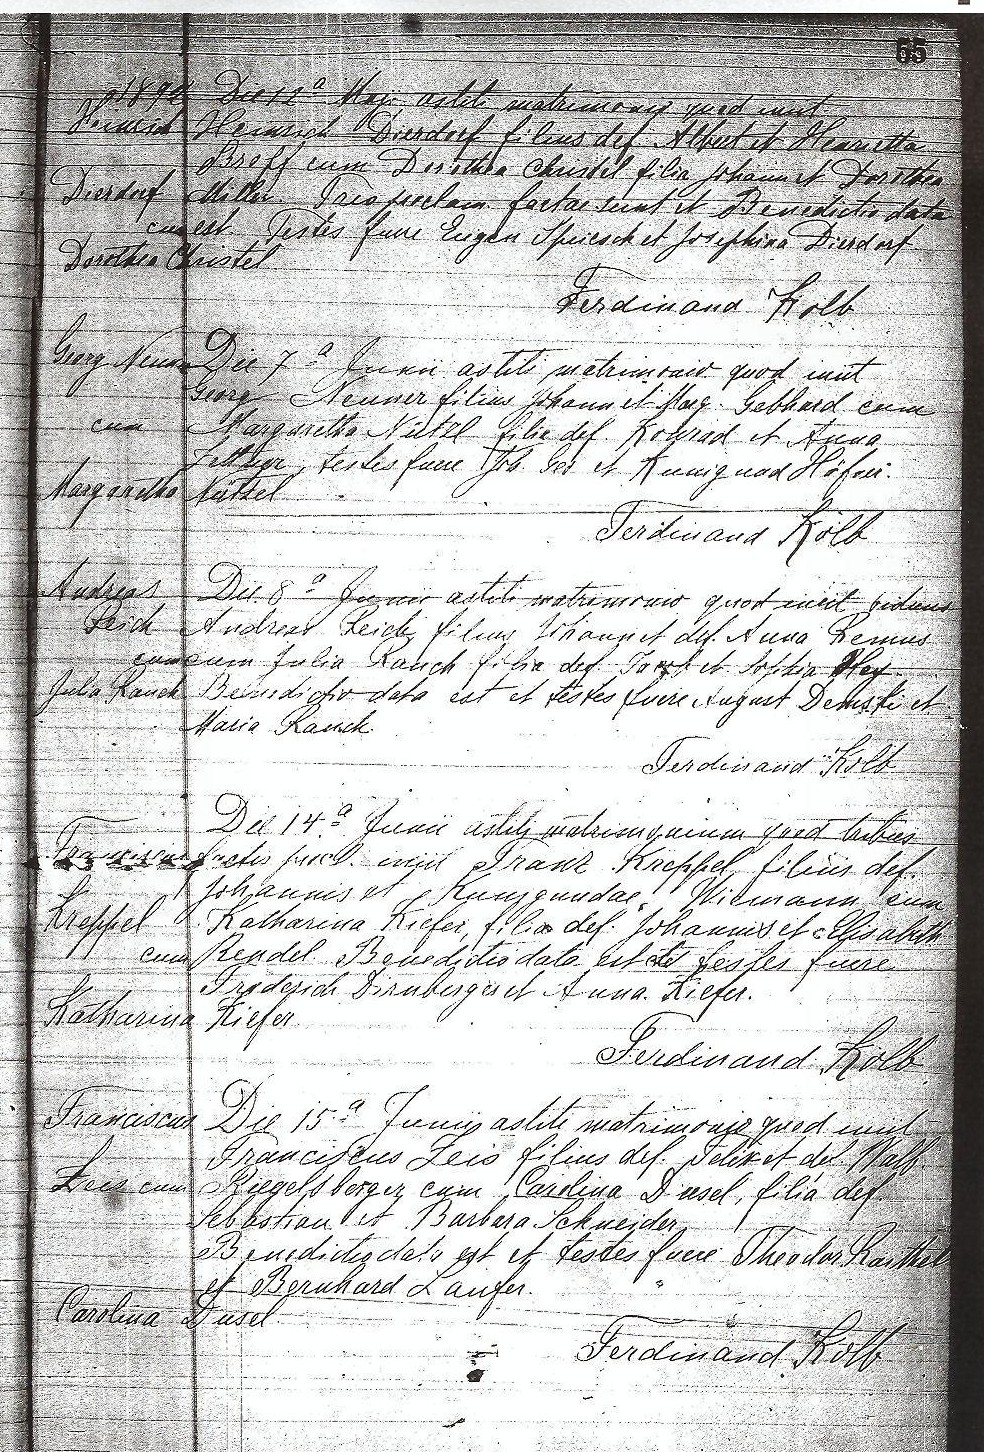 55
1892 Die 12a Maji astiti matrimonio quod iniit
Heinrich Heinrich Dierdorf filius def. Albert et Henrietta
Breff cum Dorothea Christel filia Johann et Dorothea
Dierdorf Miller. Tres proclam. factae sunt et Benedictio data
cum est. Testes fuere Eugen Spiesch et Josephina Dierdorf
Dorothea Christel
Ferdinand Kolb
Georg Neuner Die 7a Junii astiti matrimonio quod iniit
Georg Neuner filius Johann et Marg. Gebhard cum
cum Margaretha Nützel filia def. Konrad et Anna
, testes fuere Joh. et Kunigund Höfer.
Margaretha Nützel
Ferdinand Kolb
Andreas Die 8a Junii astiti matrimonio quod iniit viduus
Leich Andreas Leich, filius Johann et def. Anna Remus
cum cum Julia Rauch filia def. Jacob et Sophia Hey.
Julia Rauch Benedictio data est et testes fuere August Demski et
Maria Rauch.
Ferdinand Kolb
Die 14.a Junii astiti matrimonium quod tribus
Franciscus factis procl. iniit Franz Kreppel, filius def.
Johannis et Kunigundae Wiemann cum
Kreppel Katharina Kiefer, filia def. Johannis et Elisabeth
cum Rendel. Benedictio data est et testes fuere
Frederich Dirnberger et Anna Kiefer.
Katharina Kiefer
Ferdinand Kolb
Franciscus Die 15a Junii astiti matrimonio quod iniit
Franciscus Leis filius def. Felix et def. Walb.
Leis cum Riegelsberger cum Carolina Dusel, filia def.
Sebastian et Barbara Schneider.
Benedictio data est et testes fuere Theodor
et Bernhard Laufer.
Carolina Dusel
Ferdinand Kolb